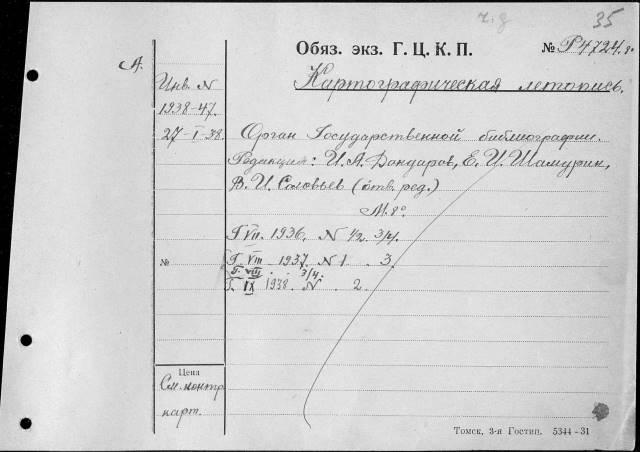 ч. з
35
Обяз. экз. Г. Ц. К. П. № Р4724.8°
А.
Картографическая летопись.
Инв. N
1938-47.
27-I-38.
Орган Государственной библиографии.
Редакция: И. А. Дондаров, Е. И. Шамурин,
В. И. Соловьев (отв. ред.)
М. 8°
Г VII. 1936. N 1/2. 3/4.
№
Г. VIII 1937. N 1 . 3.
Г. VIII . . 3/4.
Г. IX 1938. N . 2.
Цена
См. контр
карт.
Томск, 3-я Гостип. 5344-31